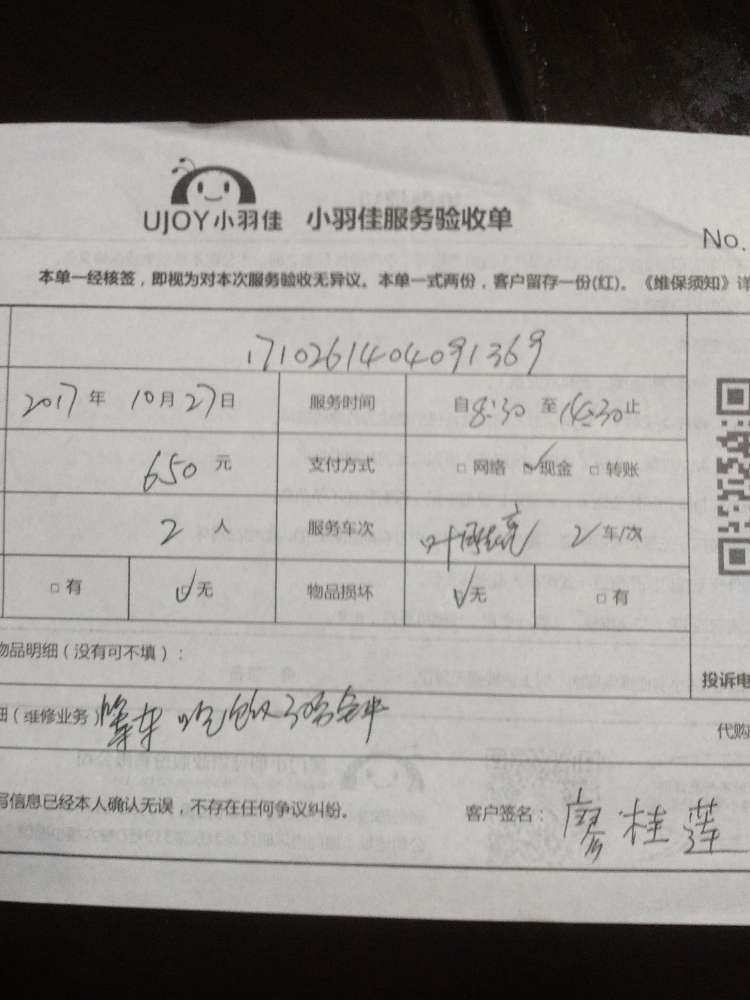 UJOY小羽佳 小羽佳服务验收单
No.
本单一经核签，即视为对本次服务验收无异议。本单一式两份，客户留存一份(红)。《维保须知》详
1710261404091369
2017年 10月27日 服务时间 自8:30 至14:30止
650元 支付方式 □网络 ☑现金 □转账
2人 服务车次 2车/次
□有 ☑无 物品损坏 ☑无 □有
物品明细（没有可不填）：
投诉电
细（维修业务）
代购
写信息已经本人确认无误，不存在任何争议纠纷。 客户签名：廖桂莲